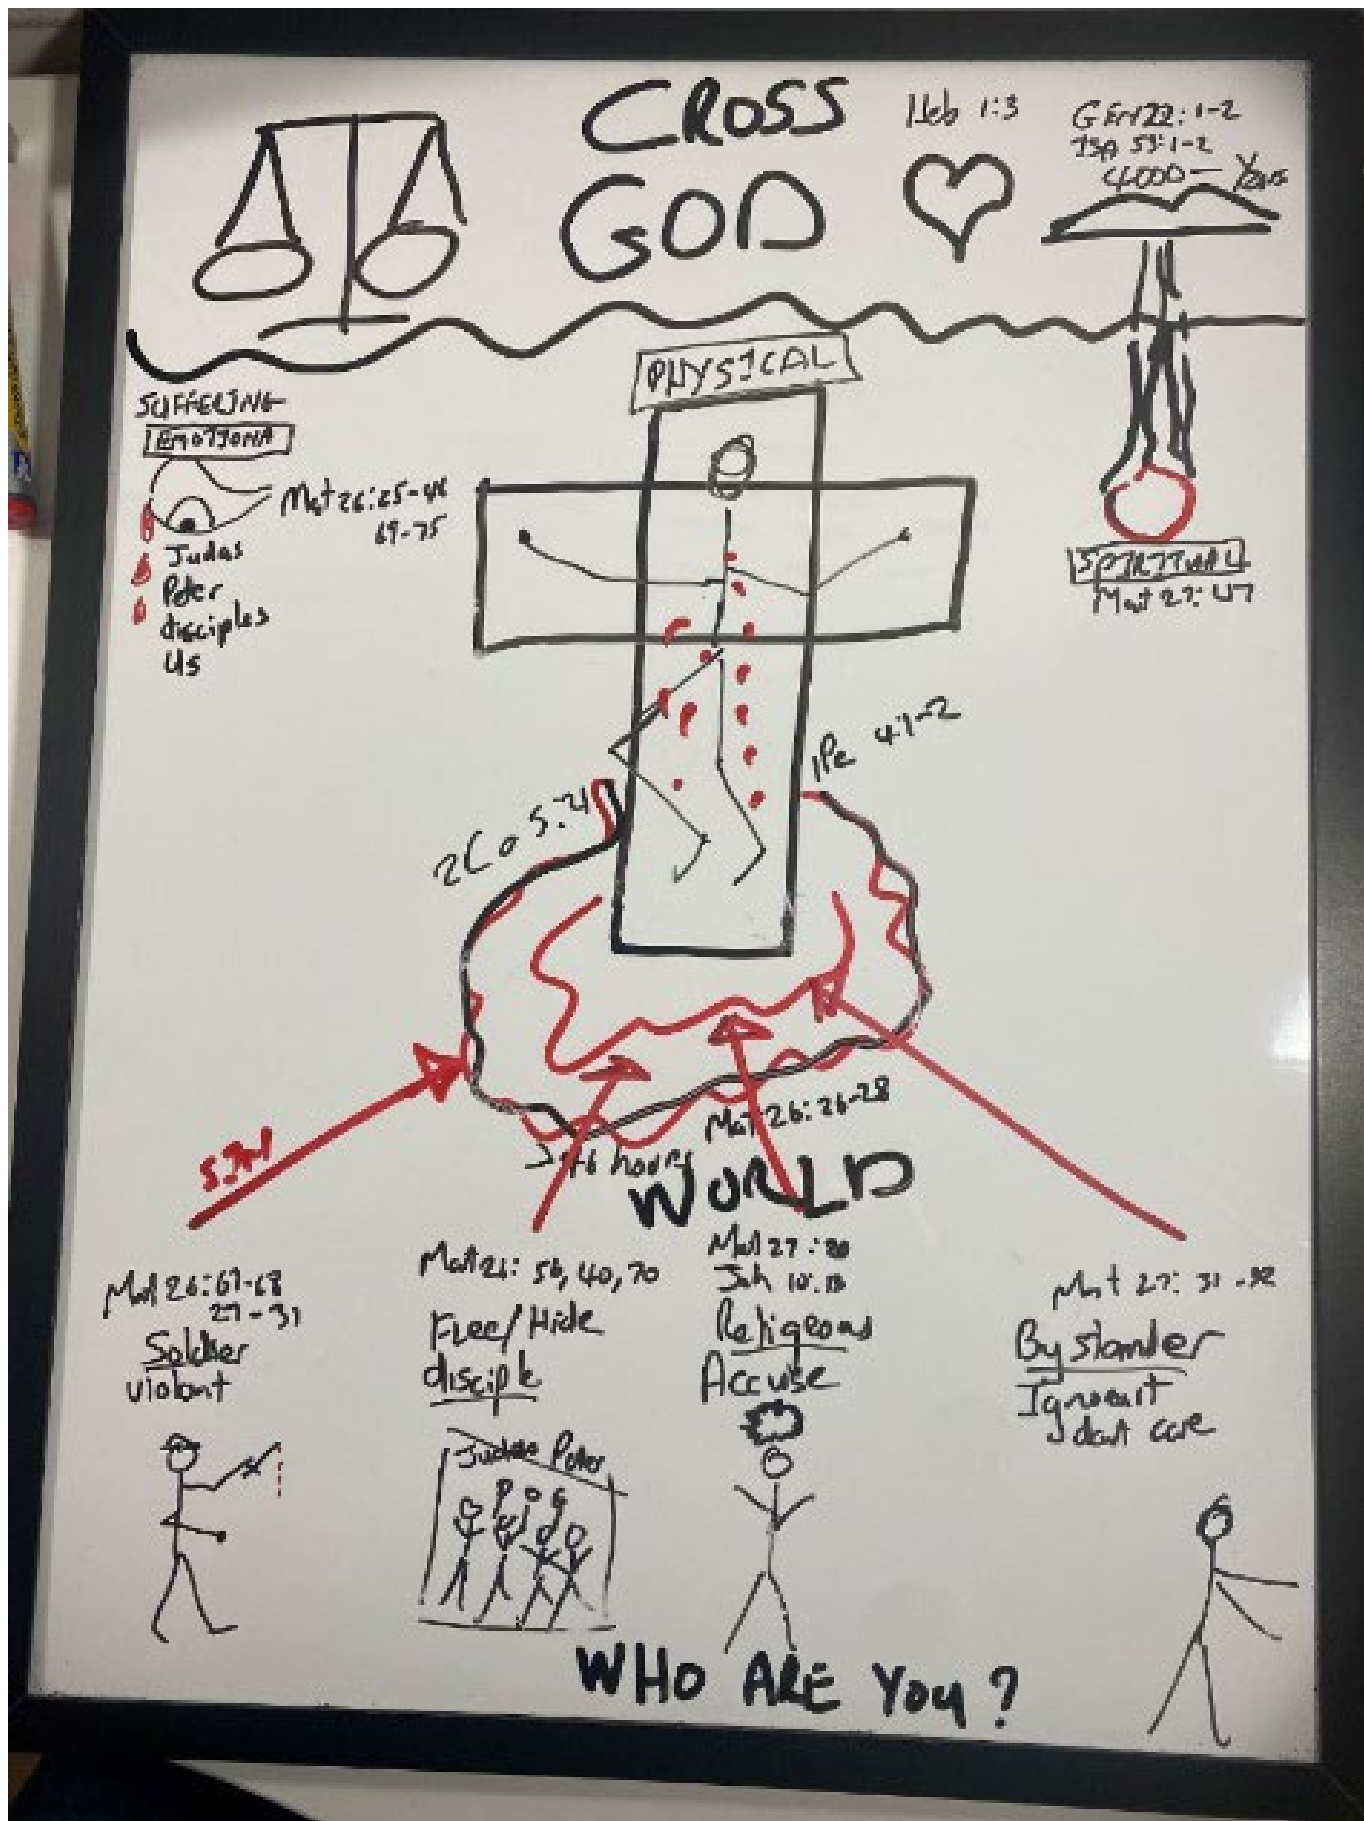 CROSS
GOD
Heb 1:3
GEN 22:1-2
ISA 53:1-2
4000 - Years
PHYSICAL
SUFFERING
EMOTIONA
Mat 26:25-46
69-75
Judas
Peter
disciples
Us
SPIRITUAL
Mat 27:47
1Pe 4:1-2
2Co 5:21
SIN
Mat 26:26-28
6 hours
WORLD
Mat 26:67-68
27-31
Soldier
violant
Mat 26: 56, 40, 70
Flee/Hide
disciple
Judas Peter
Mat 27:20
Religeous
Accuse
Mat 27: 31-32
By stander
Ignorant
dont care
WHO ARE YOU?